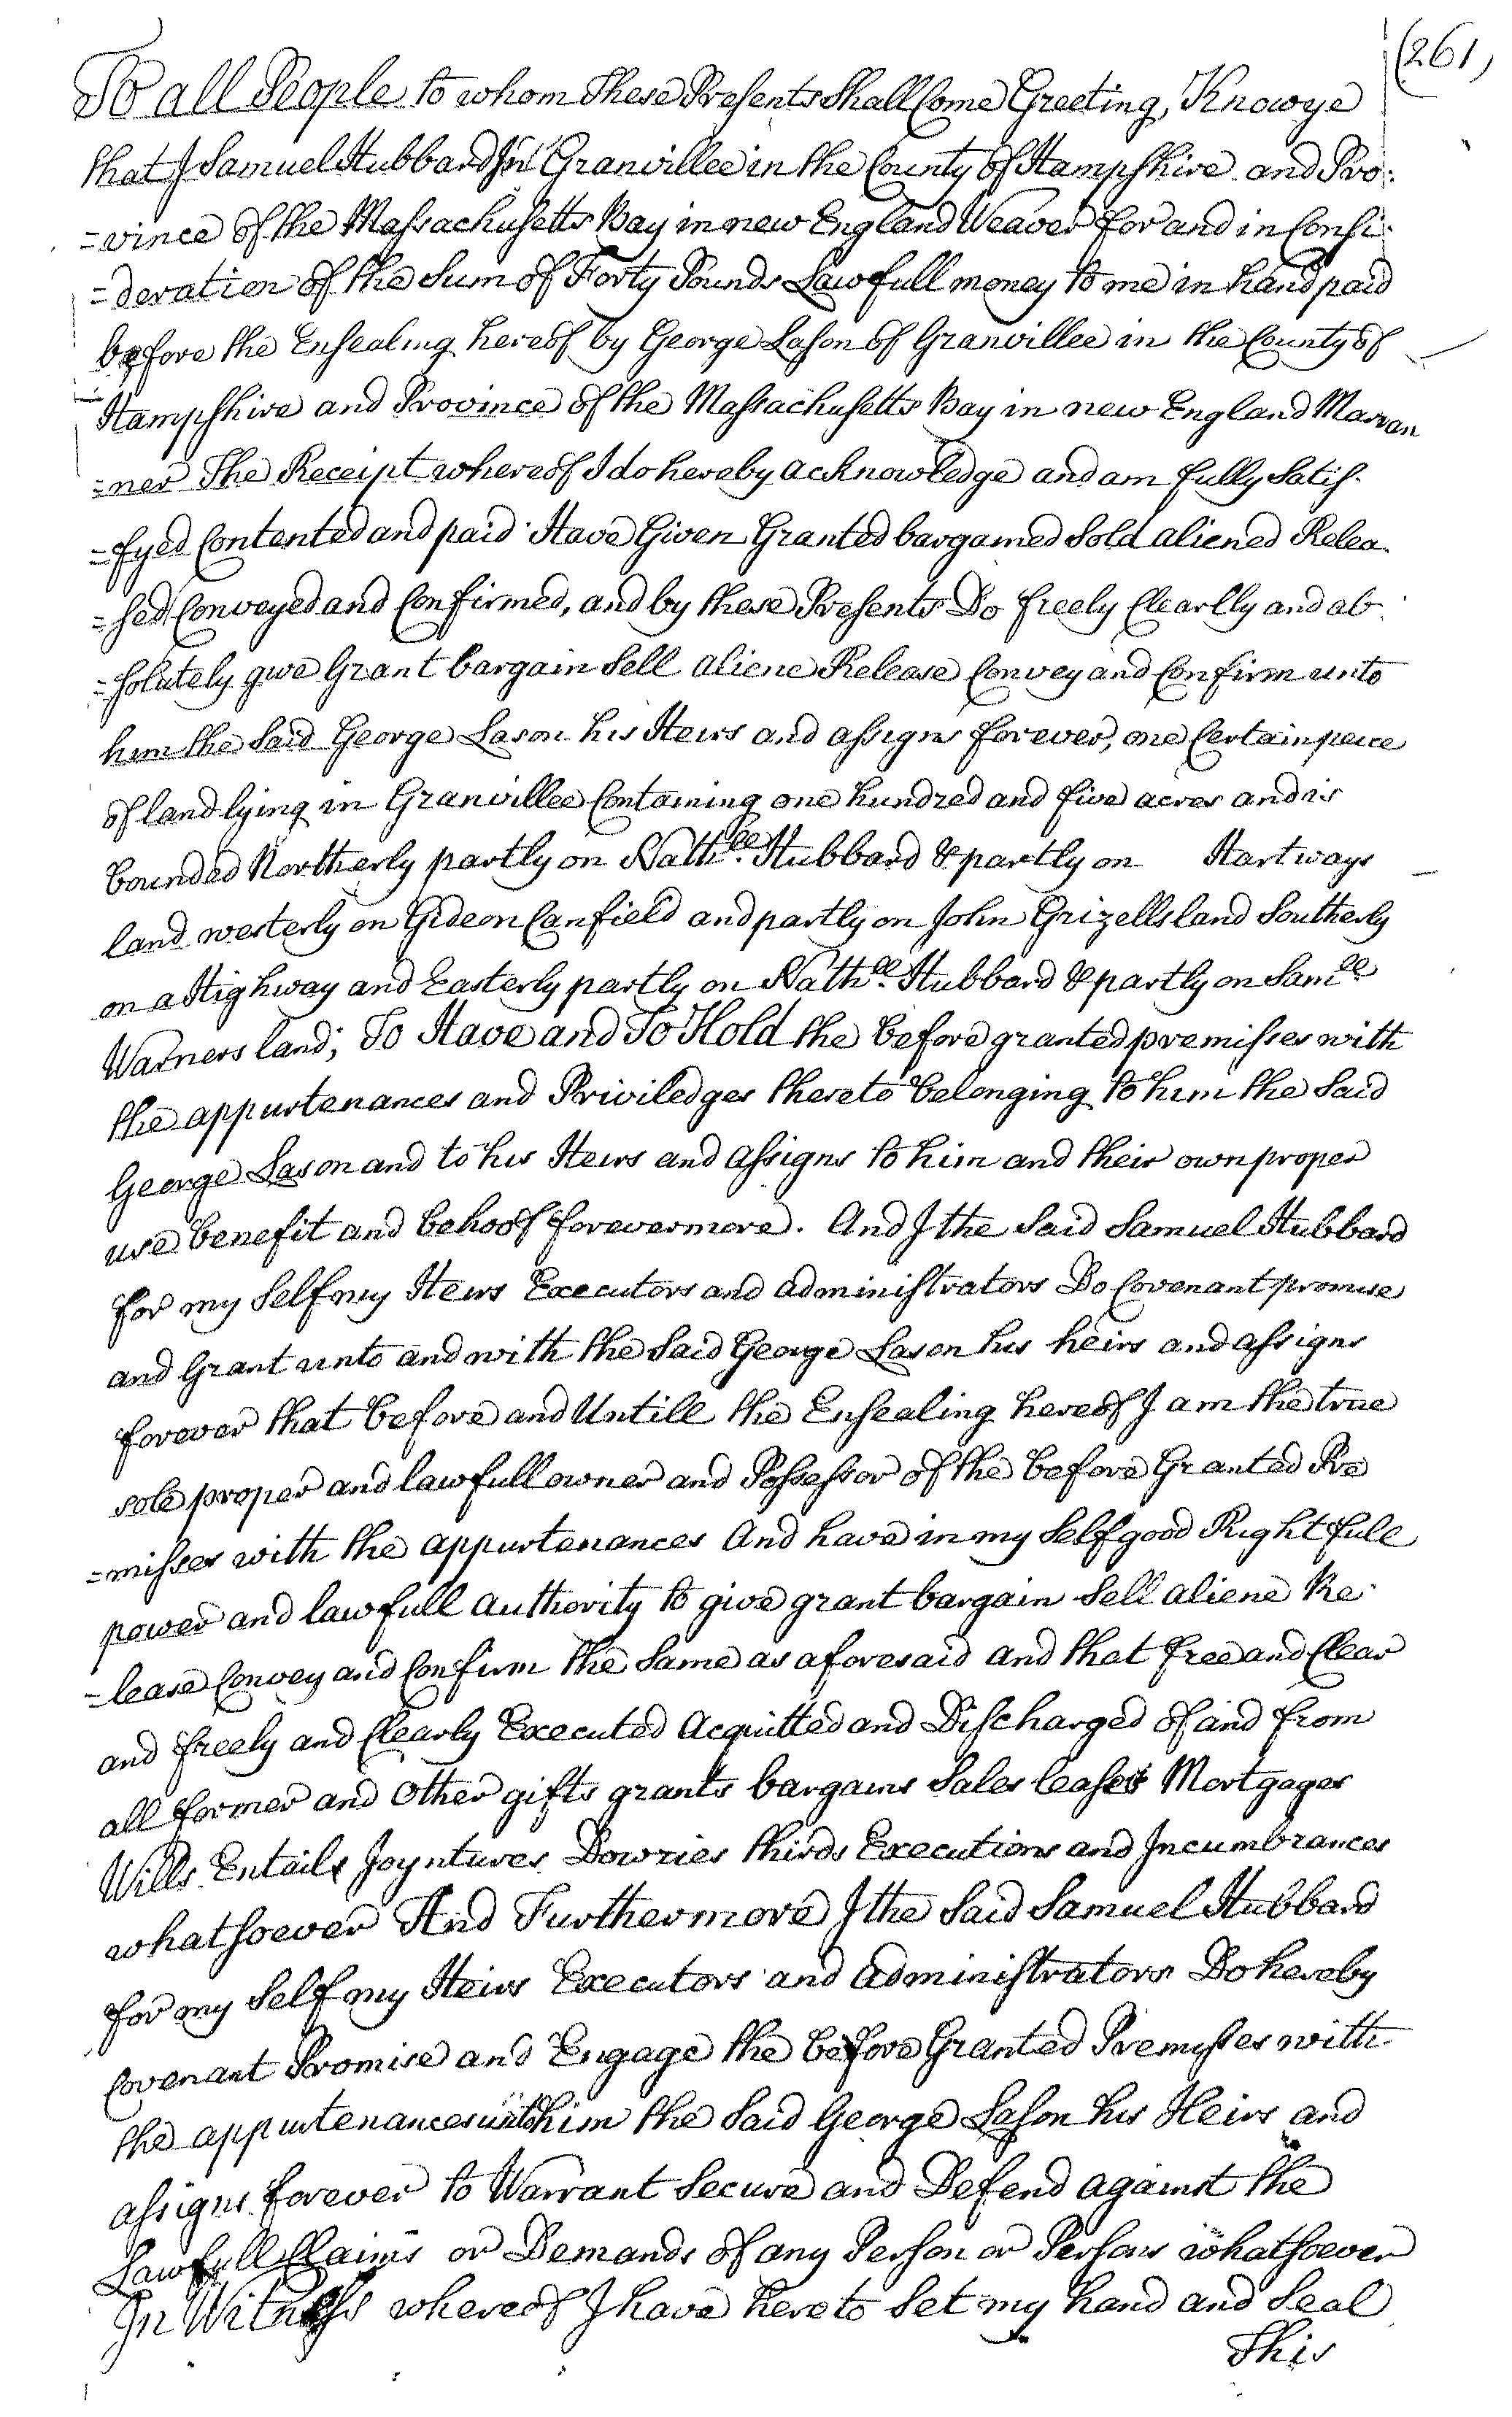 (261)
To all People to whom These Presents Shall Come Greeting, Know ye
that I Samuel Hubbard In Granvillee in the County of Hampshire and Pro-
=vince of the Massachusetts Bay in new England Weaver for and in Consi-
=deration of the Sum of Forty Pounds Lawfull money to me in hand paid
before the Ensealing hereof by George Lason of Granvillee in the County of
Hampshire and Province of the Massachusetts Bay in new England Marran
=ner The Receipt whereof I do hereby acknowledge and am fully Satis-
=fyed Contented and paid Have Given Granted bargained Sold aliened Relea-
=sed Conveyed and Confirmed, and by these Presents Do freely Clearlly and ab-
=solutely give Grant bargain Sell aliene Release Convey and Confirm unto
him the Said George Lason his Heirs and assigns forever, one Certain peice
of land lying in Granvillee Containing one hundred and five acres and is
bounded Northerly partly on Nathll Hubbard & partly on Hartways
land westerly on Gideon Canfield and partly on John Grizells land Southerly
on a Highway and Easterly partly on Nathll Hubbard & partly on Samll
Warners land; To Have and To Hold the before granted premisses with
the appurtenances and Priviledges thereto belonging to him the Said
George Lason and to his Heirs and assigns to him and their own proper
use benefit and behoof forevermore. And I the Said Samuel Hubbard
for my Self my Heirs Executors and administrators Do Covenant promise
and Grant unto and with the Said George Lason his heirs and assigns
forever that before and Untill the Ensealing hereof I am the true
sole proper and lawfull owner and Possessor of the before Granted Pre
=misses with the appurtenances And have in my Self good Right full
power and lawfull authority to give grant bargain Sell aliene Re-
=lease Convey and Confirm the Same as aforesaid and that free and Clear
and freely and Clearly Executed Acquitted and Discharged of and from
all former and Other gifts grants bargains Sales leases Mortgages
Wills Entails Joyntures Dowries thirds Executions and Incumbrances
whatsoever And Furthermore I the Said Samuel Hubbard
for my Self my Heirs Executors and administrators Do hereby
Covenant Promise and Engage the before Granted Premysses with
the appurtenances unto him the Said George Lason his Heirs and
assigns forever to Warrant Secure and Defend against the
Lawfull Claims or Demands of any Person or Persons whatsoever
In Witness whereof I have hereto Set my hand and Seal
This